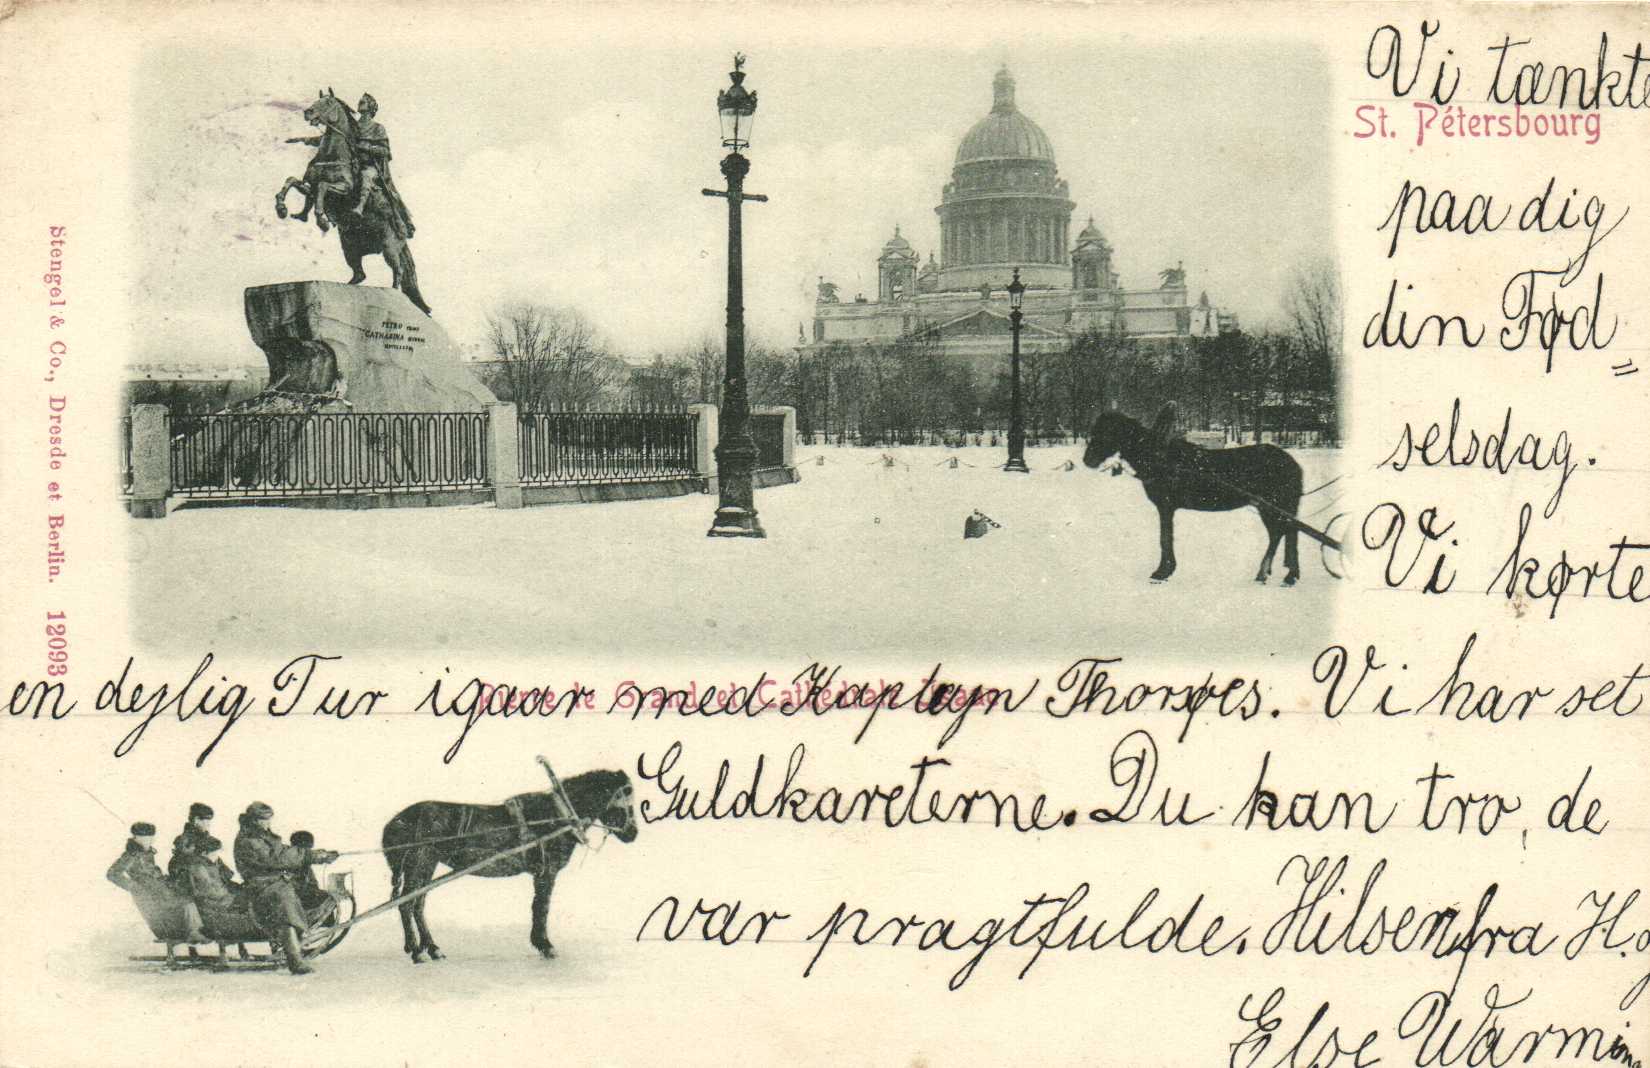 Vi tænkte
St. Pétersbourg
paa dig
din Fød„
selsdag.
Vi kørte
en dejlig Tur igaar med Kaptajn Thorsøes. Vi har set
Pierre le Grand et Cathédrale Isaac
Guldkareterne. Du kan tro, de
var pragtfulde. Hilsen fra H.
Else Warming
Stengel & Co., Dresde et Berlin. 12093
PETRO primo
CATHARINA secunda